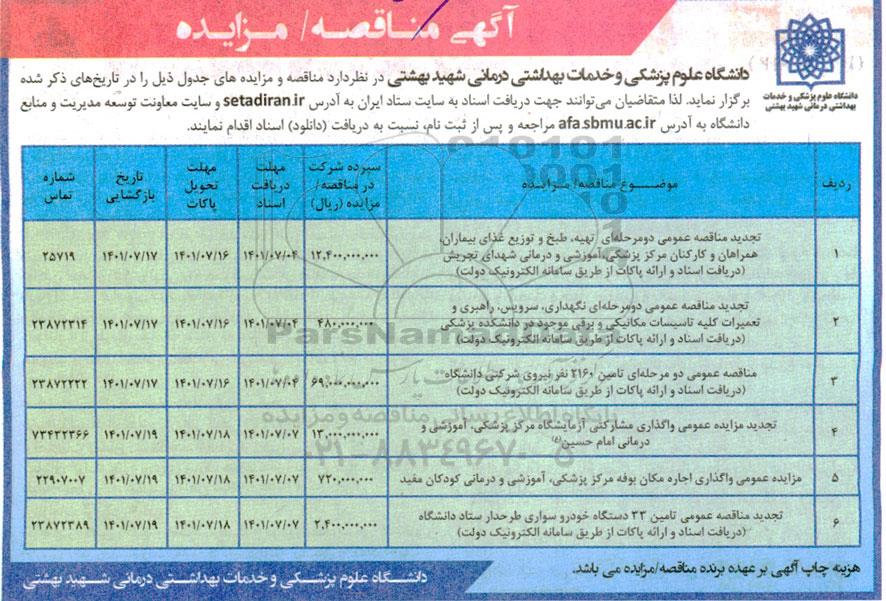 آگهی مناقصه/ مزایده
دانشگاه علوم پزشکی و خدمات
بهداشتی درمانی شهید بهشتی
دانشگاه علوم پزشکی و خدمات بهداشتی درمانی شهید بهشتی در نظردارد مناقصه و مزایده های جدول ذیل را در تاریخ‌های ذکر شده
برگزار نماید. لذا متقاضیان می‌توانند جهت دریافت اسناد به سایت ستاد ایران به آدرس setadiran.ir و سایت معاونت توسعه مدیریت و منابع
دانشگاه به آدرس afa.sbmu.ac.ir مراجعه و پس از ثبت نام، نسبت به دریافت (دانلود) اسناد اقدام نمایند.
ردیف موضوع مناقصه/ مزایده سپرده شرکت در مناقصه/ مزایده (ریال) مهلت دریافت اسناد مهلت تحویل پاکات تاریخ بازگشایی شماره تماس
۱ تجدید مناقصه عمومی دومرحله‌ای تهیه، طبخ و توزیع غذای بیماران،
همراهان و کارکنان مرکز پزشکی،آموزشی و درمانی شهدای تجریش
(دریافت اسناد و ارائه پاکات از طریق سامانه الکترونیک دولت)
۱۲,۴۰۰,۰۰۰,۰۰۰ ۱۴۰۱/۰۷/۰۴ ۱۴۰۱/۰۷/۱۶ ۱۴۰۱/۰۷/۱۷ ۲۵۷۱۹
۲ تجدید مناقصه عمومی دومرحله‌ای نگهداری، سرویس، راهبری و
تعمیرات کلیه تاسیسات مکانیکی و برقی موجود در دانشکده پزشکی
(دریافت اسناد و ارائه پاکات از طریق سامانه الکترونیک دولت)
۴۸۰,۰۰۰,۰۰۰ ۱۴۰۱/۰۷/۰۴ ۱۴۰۱/۰۷/۱۶ ۱۴۰۱/۰۷/۱۷ ۲۳۸۷۲۳۱۴
۳ مناقصه عمومی دو مرحله‌ای تامین ۲۱۶۰ نفر نیروی شرکتی دانشگاه
(دریافت اسناد و ارائه پاکات از طریق سامانه الکترونیک دولت)
۶۹,۰۰۰,۰۰۰,۰۰۰ ۱۴۰۱/۰۷/۰۴ ۱۴۰۱/۰۷/۱۶ ۱۴۰۱/۰۷/۱۷ ۲۳۸۷۲۲۲۲
۴ تجدید مزایده عمومی واگذاری مشارکتی آزمایشگاه مرکز پزشکی، آموزشی و
درمانی امام حسین(ع)
۱۳,۰۰۰,۰۰۰,۰۰۰ ۱۴۰۱/۰۷/۰۷ ۱۴۰۱/۰۷/۱۸ ۱۴۰۱/۰۷/۱۹ ۷۳۴۳۲۳۶۶
۵ مزایده عمومی واگذاری اجاره مکان بوفه مرکز پزشکی، آموزشی و درمانی کودکان مفید ۷۲۰,۰۰۰,۰۰۰ ۱۴۰۱/۰۷/۰۷ ۱۴۰۱/۰۷/۱۸ ۱۴۰۱/۰۷/۱۹ ۲۲۹۰۷۰۰۷
۶ تجدید مناقصه عمومی تامین ۳۳ دستگاه خودرو سواری طرحدار ستاد دانشگاه
(دریافت اسناد و ارائه پاکات از طریق سامانه الکترونیک دولت)
۲,۴۰۰,۰۰۰,۰۰۰ ۱۴۰۱/۰۷/۰۷ ۱۴۰۱/۰۷/۱۸ ۱۴۰۱/۰۷/۱۹ ۲۳۸۷۲۳۸۹
ParsNamadData
پایگاه اطلاع رسانی مناقصه و مزایده
۰۲۱-۸۸۳۴۹۶۷۰-۵
هزینه چاپ آگهی بر عهده برنده مناقصه/مزایده می باشد.
دانشگاه علوم پزشکی و خدمات بهداشتی درمانی شهید بهشتی